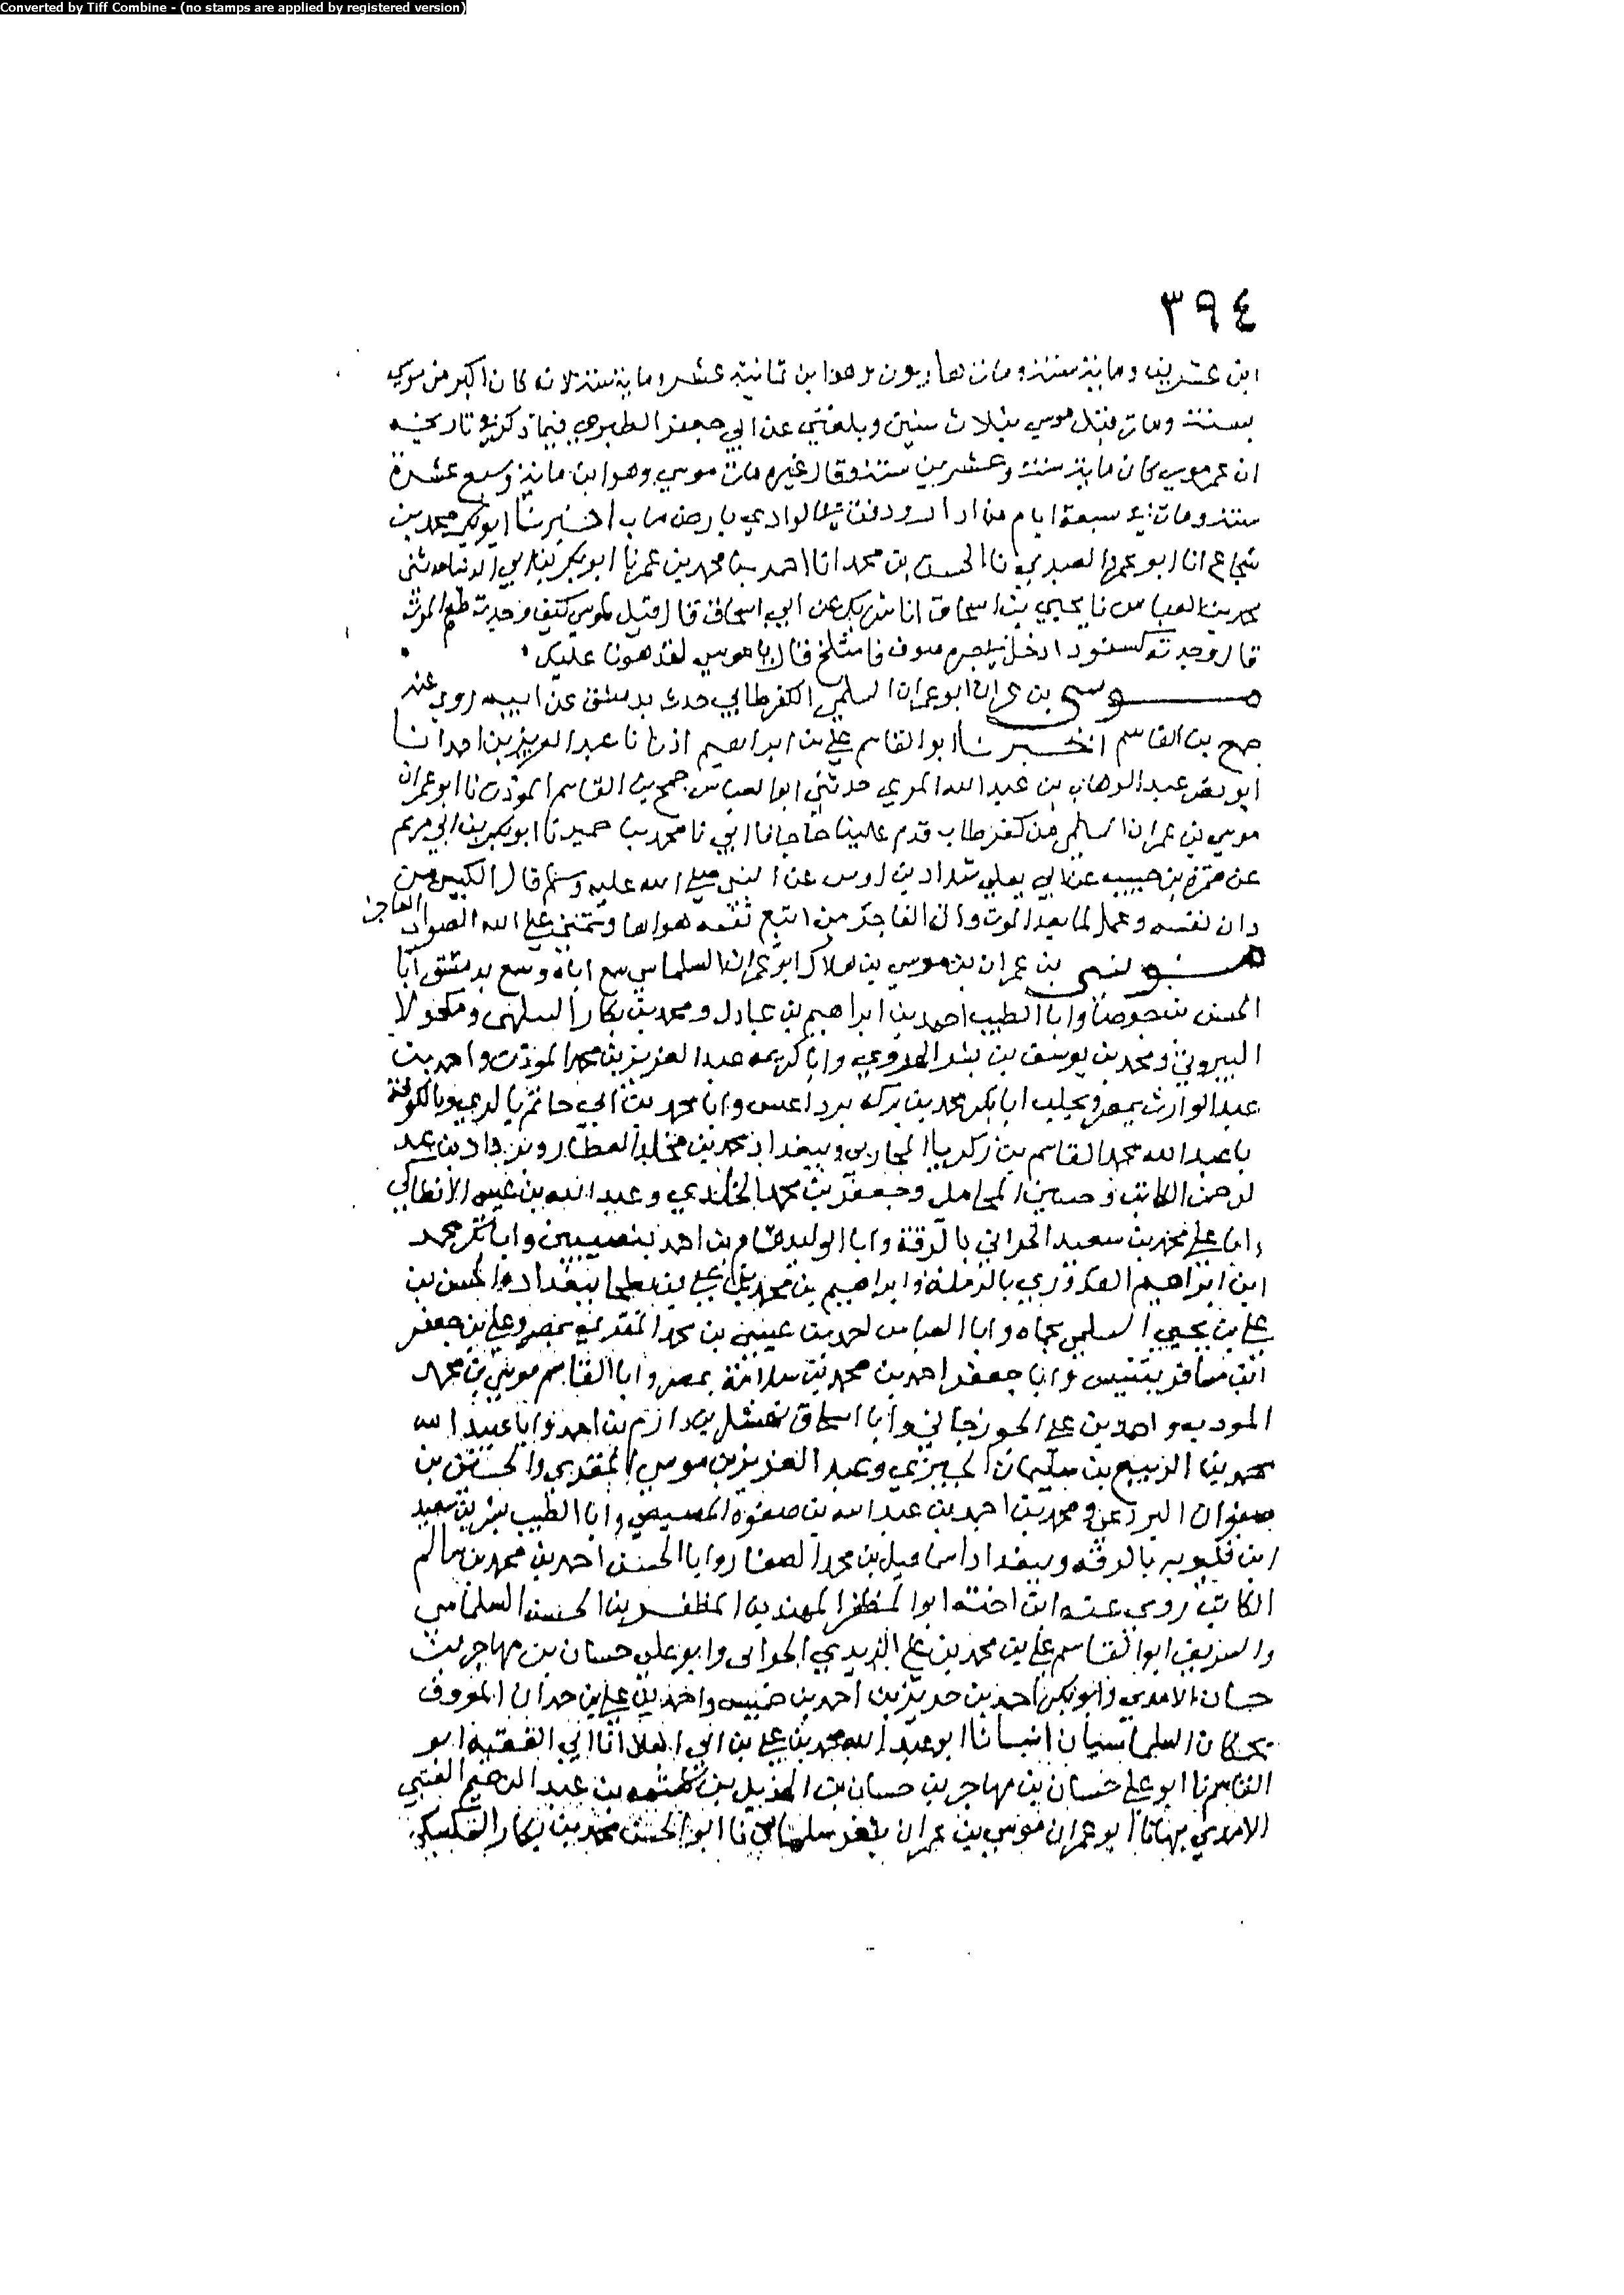 Converted by Tiff Combine - (no stamps are applied by registered version)
٣٩٤
ابن عشرين وماية سنة ومات هارون وهو ابن ثمانية عشر وماية سنة لانه كان اكبر من موسي
بسنة ومات قبل موسي بثلاث سنين وبلغني عن ابي جعفر الطبري فيما ذكر في تاريخه
ان عمر موسي كان ماية سنة وعشرين سنة وقال غيره مات موسي وهو ابن ماية وسبع عشرة
سنة ومات في سبعة ايام من اذار ودفن في الوادي بارض ماب اخبرنا ابو بكر محمد بن
شجاع انا ابو عمرو العبدي نا الحسن بن محمد انا احمد بن محمد بن عمر نا ابو بكر بن ابي الدنيا حدثني
محمد بن العباس نا يحيي بن اسحاق انا شريك عن ابي اسحاق قال قيل لموسي كيف وجدت طعم الموت
قال وجدته كسفود ادخل في جرة صوف فامتلخ قال يا موسي لقد هونا عليك
موسى بن عمران ابو عمران السلمي الكفرطابي حدث بدمشق عن ابيه روى عنه
جمح بن القاسم اخبرنا ابو القاسم علي بن ابراهيم اذنا نا عبد العزيز بن احمد انا
ابو نصر عبد الوهاب بن عبد الله المري حدثني ابو العباس جمح بن القاسم الموذن نا ابو عمران
موسي بن عمران السلمي من كفرطاب قدم علينا حاجا نا ابي نا محمد بن حمير نا ابو بكر بن ابي مريم
عن ضمرة بن حبيب عن ابي يعلي شداد بن اوس عن النبي صلى الله عليه وسلم قال الكيس من
دان نفسه وعمل لما بعد الموت وان الفاجر من اتبع نفسه هواها وتمنى علي الله الصواب العاجز
موسى بن عمران بن موسي بن هلال ابو عمران السلماسي سمع اباه وسمع بدمشق ابا
الحسن بن جوصا وابا الطيب احمد بن ابراهيم بن عبادل ومحمد بن بكار السلمى ومكحولا
البيروتي ومحمد بن يوسف بن بشر الهروي وابا كريمه عبد العزيز بن محمد الموذن واحمد بن
عبد الوارث بمصر وبحلب ابا بكر محمد بن بركه برداعس وابا محمد بن ابي حاتم بالري وبالكوفة
با عبد الله محمد القاسم بن زكريا المحاربي وببغداد محمد بن مخلد العطار ويزداد بن عبد
لرحمن الكاتب وحسين المحاملي وجعفر بن محمد الخلدي وعبد الله بن غيس الانطاكي
وابا علي محمد بن سعيد الحراني بالرقة وابا الوليد هشام بن احمد بنصيبين وابا بكر محمد
ابن ابراهيم العكوري بالرملة وابراهيم بن محمد بن علي بن بطحا ببغداد والحسن بن
علي بن يحيي السلمي بحماه وابا العباس احمد بن عيسى بن محمد المقدسي بمصر وعلي بن جعفر
ابن مسافر بتنيس وابا جعفر احمد بن محمد بن سلامة بمصر وابا القاسم موسي بن محمد
المودب واحمد بن علي الجوزجاني وابا اسحاق نهشل بن دارم بن احمد وابا عبيد الله
محمد بن الربيع بن سليمان الجيزي وعبد العزيز بن موسي المقري والحسين بن
صفوان البرذعي ومحمد بن احمد بن عبد الله بن صفوه المصيصي وابا الطيب بن سعيد
ابن قليويه بالرقه وببغداد اسماعيل بن محمد الصفار وابا الحسن احمد بن محمد بن سالم
الكاتب روي عنه ابن اخته ابو المظفر المهند بن المظفر بن الحسن السلماسي
والشريف ابو القاسم علي بن محمد بن علي الزيدي الحرانى وابو علي حسان بن مهاجر بن
حسان الامدي وابو بكر احمد بن حريز بن احمد بن خميس واحمد بن علي بن حمدان المعروف
السلماسيان انبانا ابو عبد الله محمد بن علي بن ابي العلا انا ابي الفقيه ابو
القاسم نا ابو علي حسان بن مهاجر بن حسان بن الهذيل بن بن عبد الرحيم العتبي
الامدي بها نا ابو عمران موسي بن عمران بثغر سلماس نا ابو الحسن محمد بن بكار السكسكي